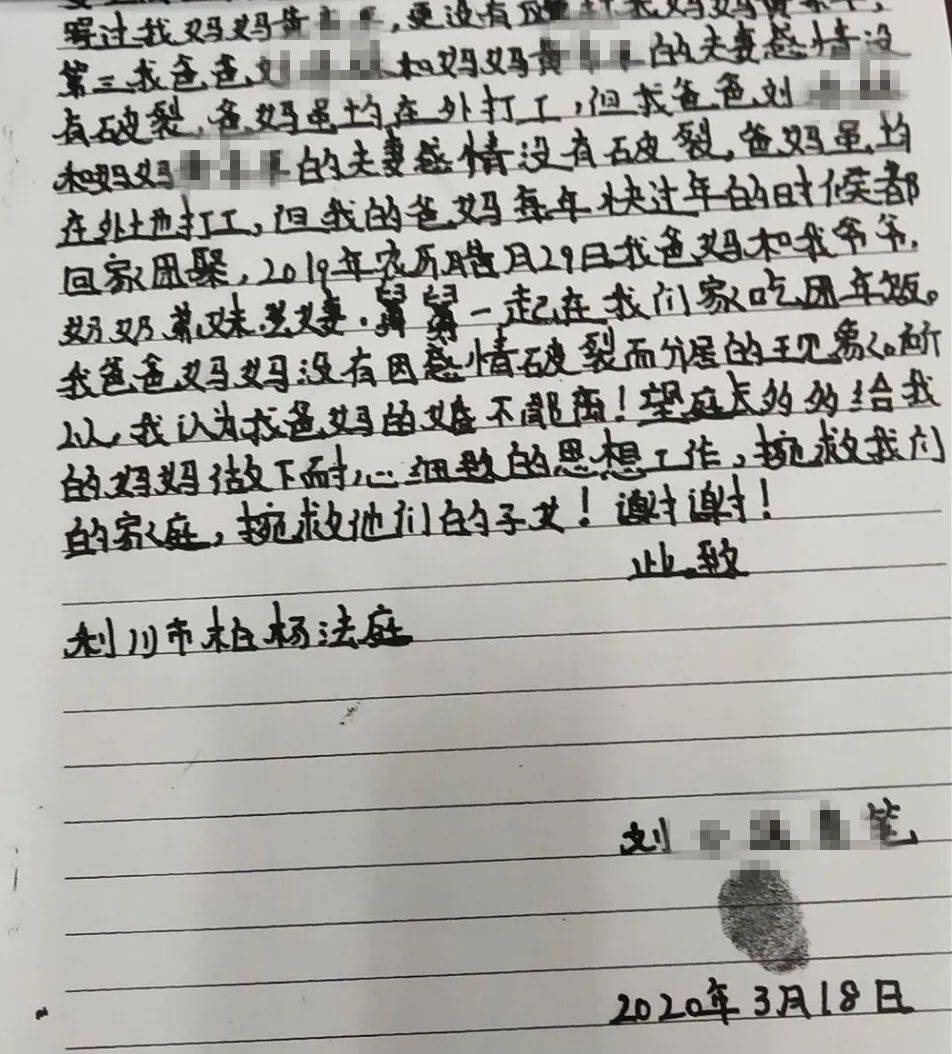 过我妈妈黄,更没有我妈妈
第三我爸爸刘和妈妈黄的夫妻感情没
有破裂,爸妈虽均在外打工,但我爸爸刘
和妈妈的夫妻感情没有破裂,爸妈虽均
在外地打工,但我的爸妈每年快过年的时候都
回家团聚,2019年农历腊月29日我爸妈和我爷爷.
奶奶弟妹.舅舅一起在我们家吃团年饭。
我爸爸妈妈没有因感情破裂而分居的现象。所
以,我认为我爸妈的婚不能离!望庭长多多给我
的妈妈做下耐心细致的思想工作,挽救我们
的家庭,挽救他们的子女!谢谢!
此致
利川市柏杨法庭
刘笔
2020年3月18日